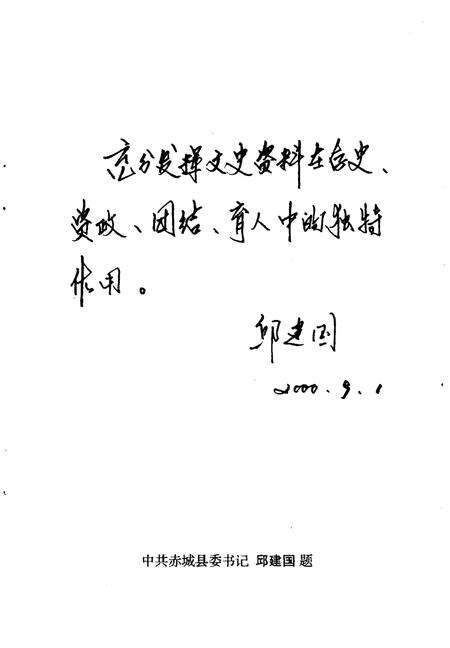 充分发挥文史资料在存史、
资政、团结、育人中的独特
作用。
邱建国
2000.9.1
中共赤城县委书记 邱建国 题